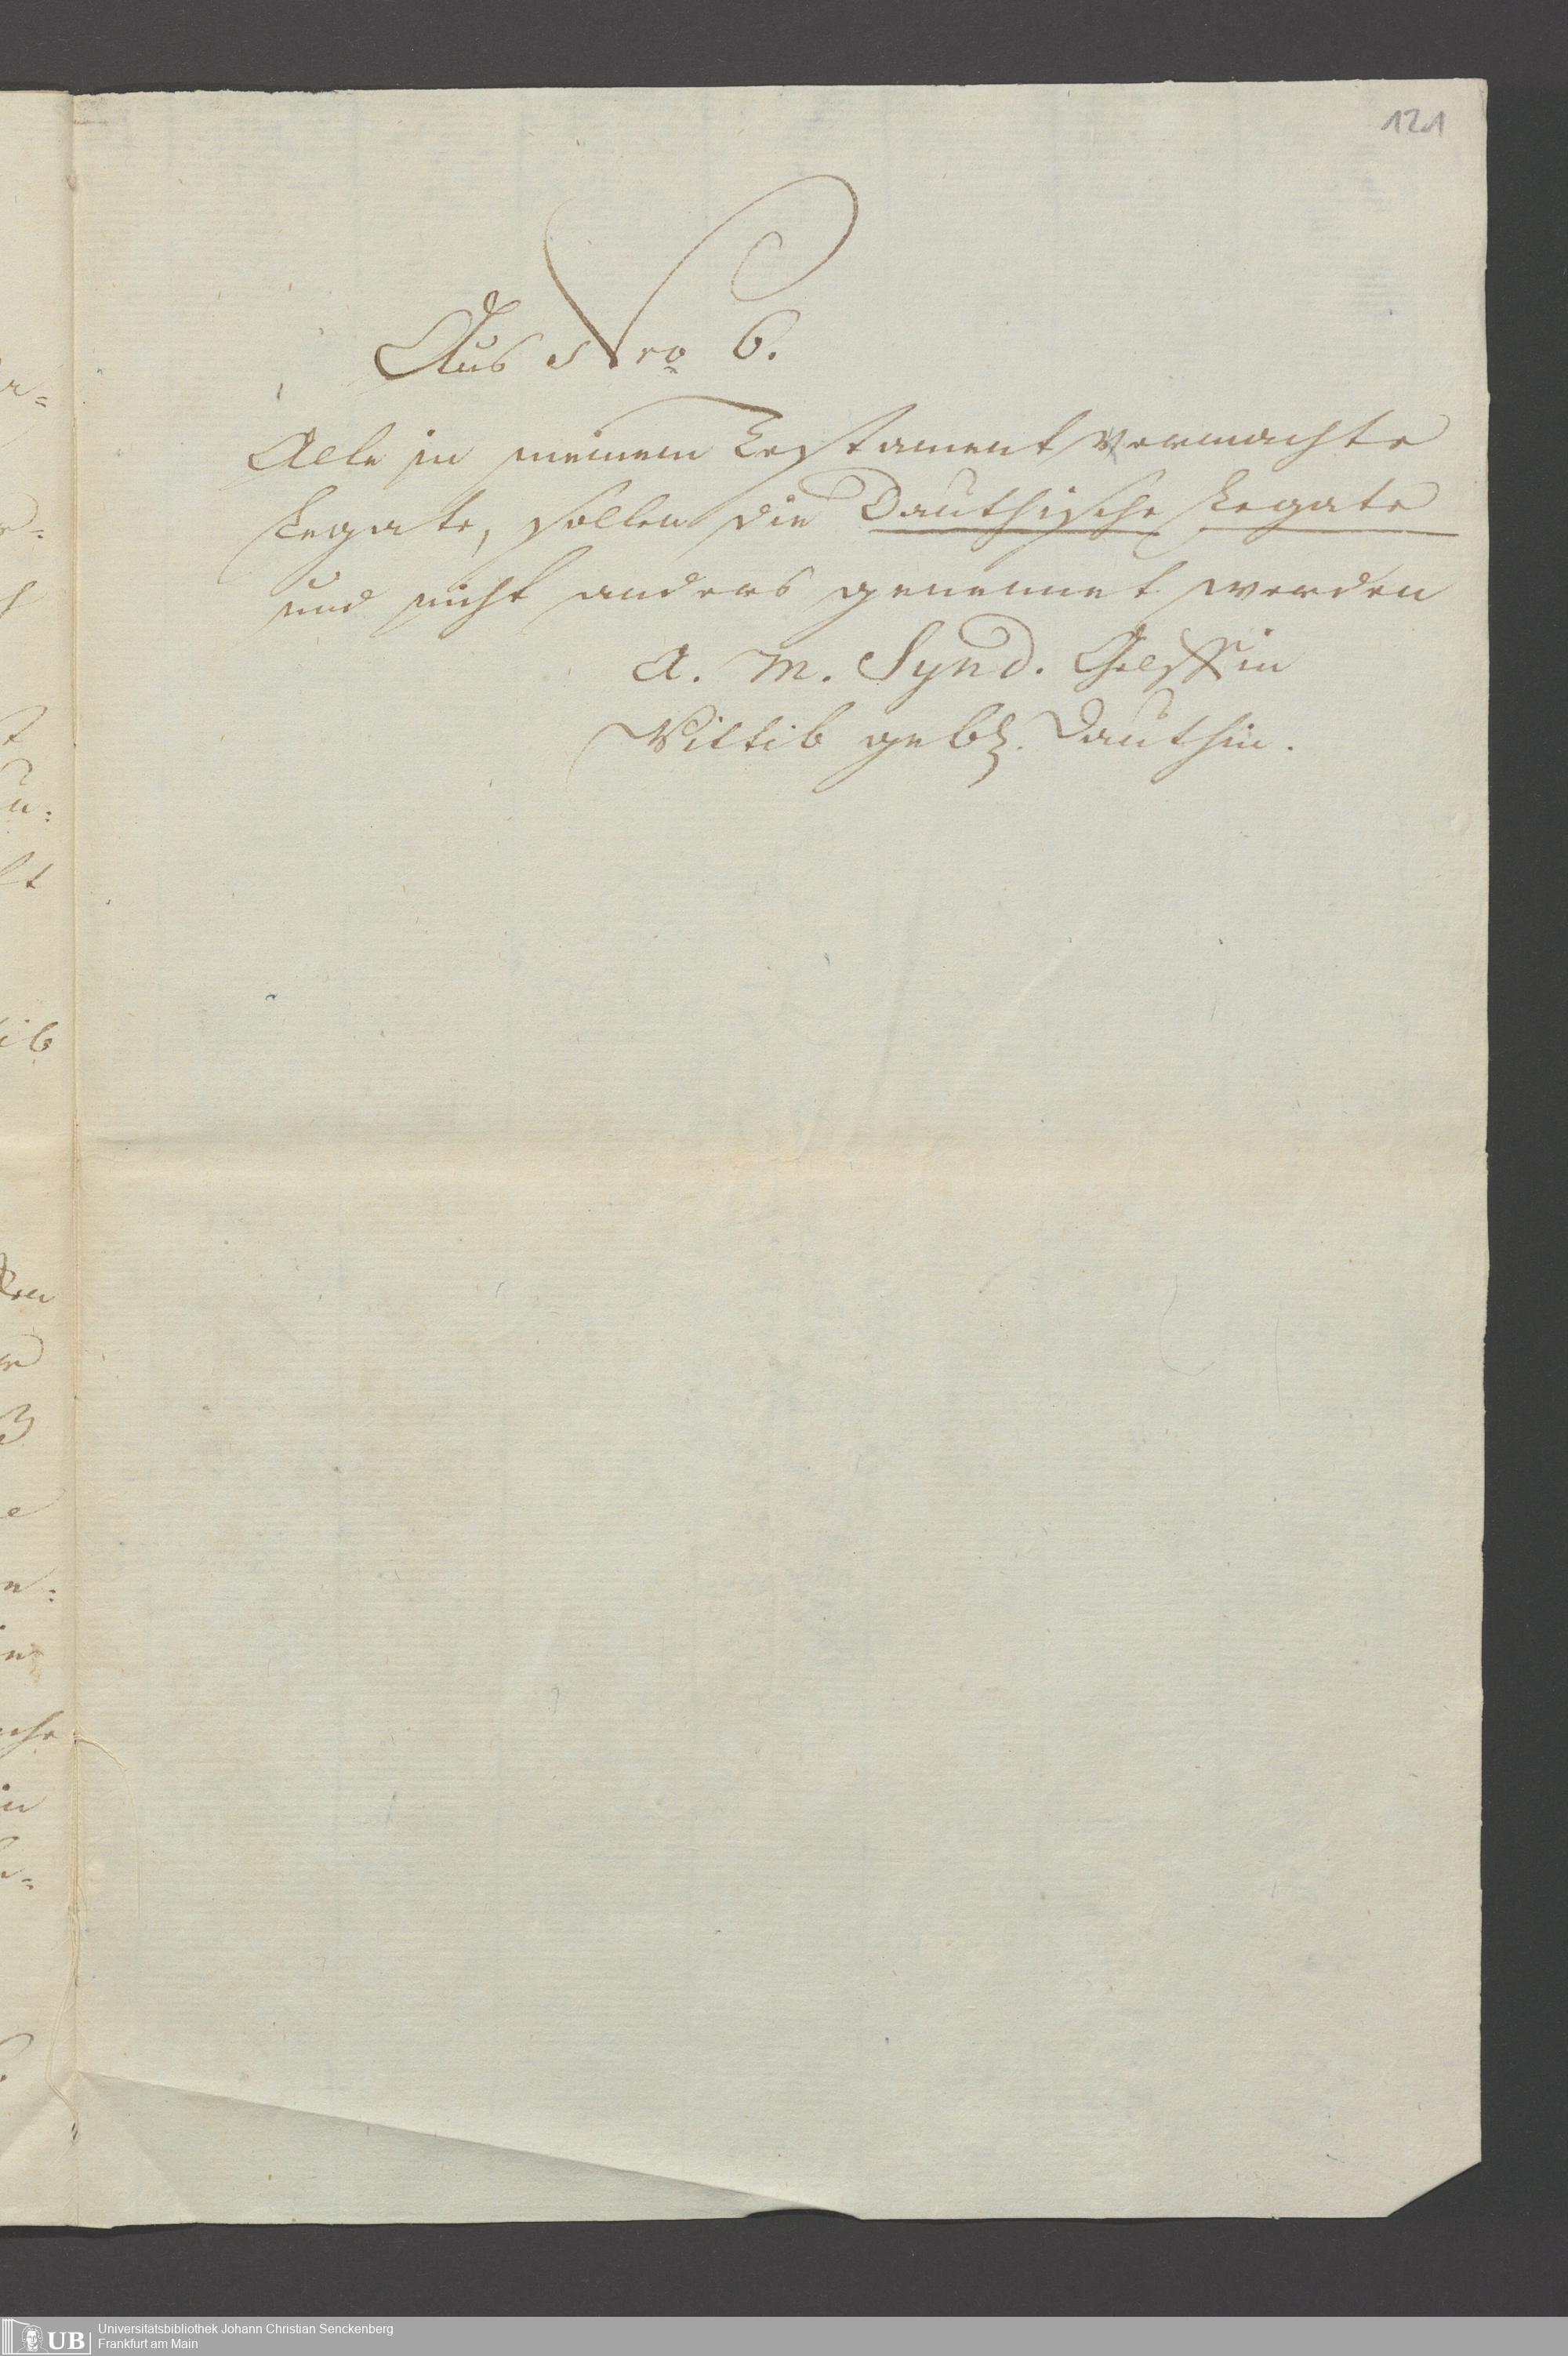 121
Aus Nro 6.
Alle in meinem Testament vermachte
Legate, sollen die Dauthische Legate
und nicht anders genennet werden
A. M. Synd.
Wittib geb. Dauthin.
Universitätsbibliothek Johann Christian Senckenberg
Frankfurt am Main
UB